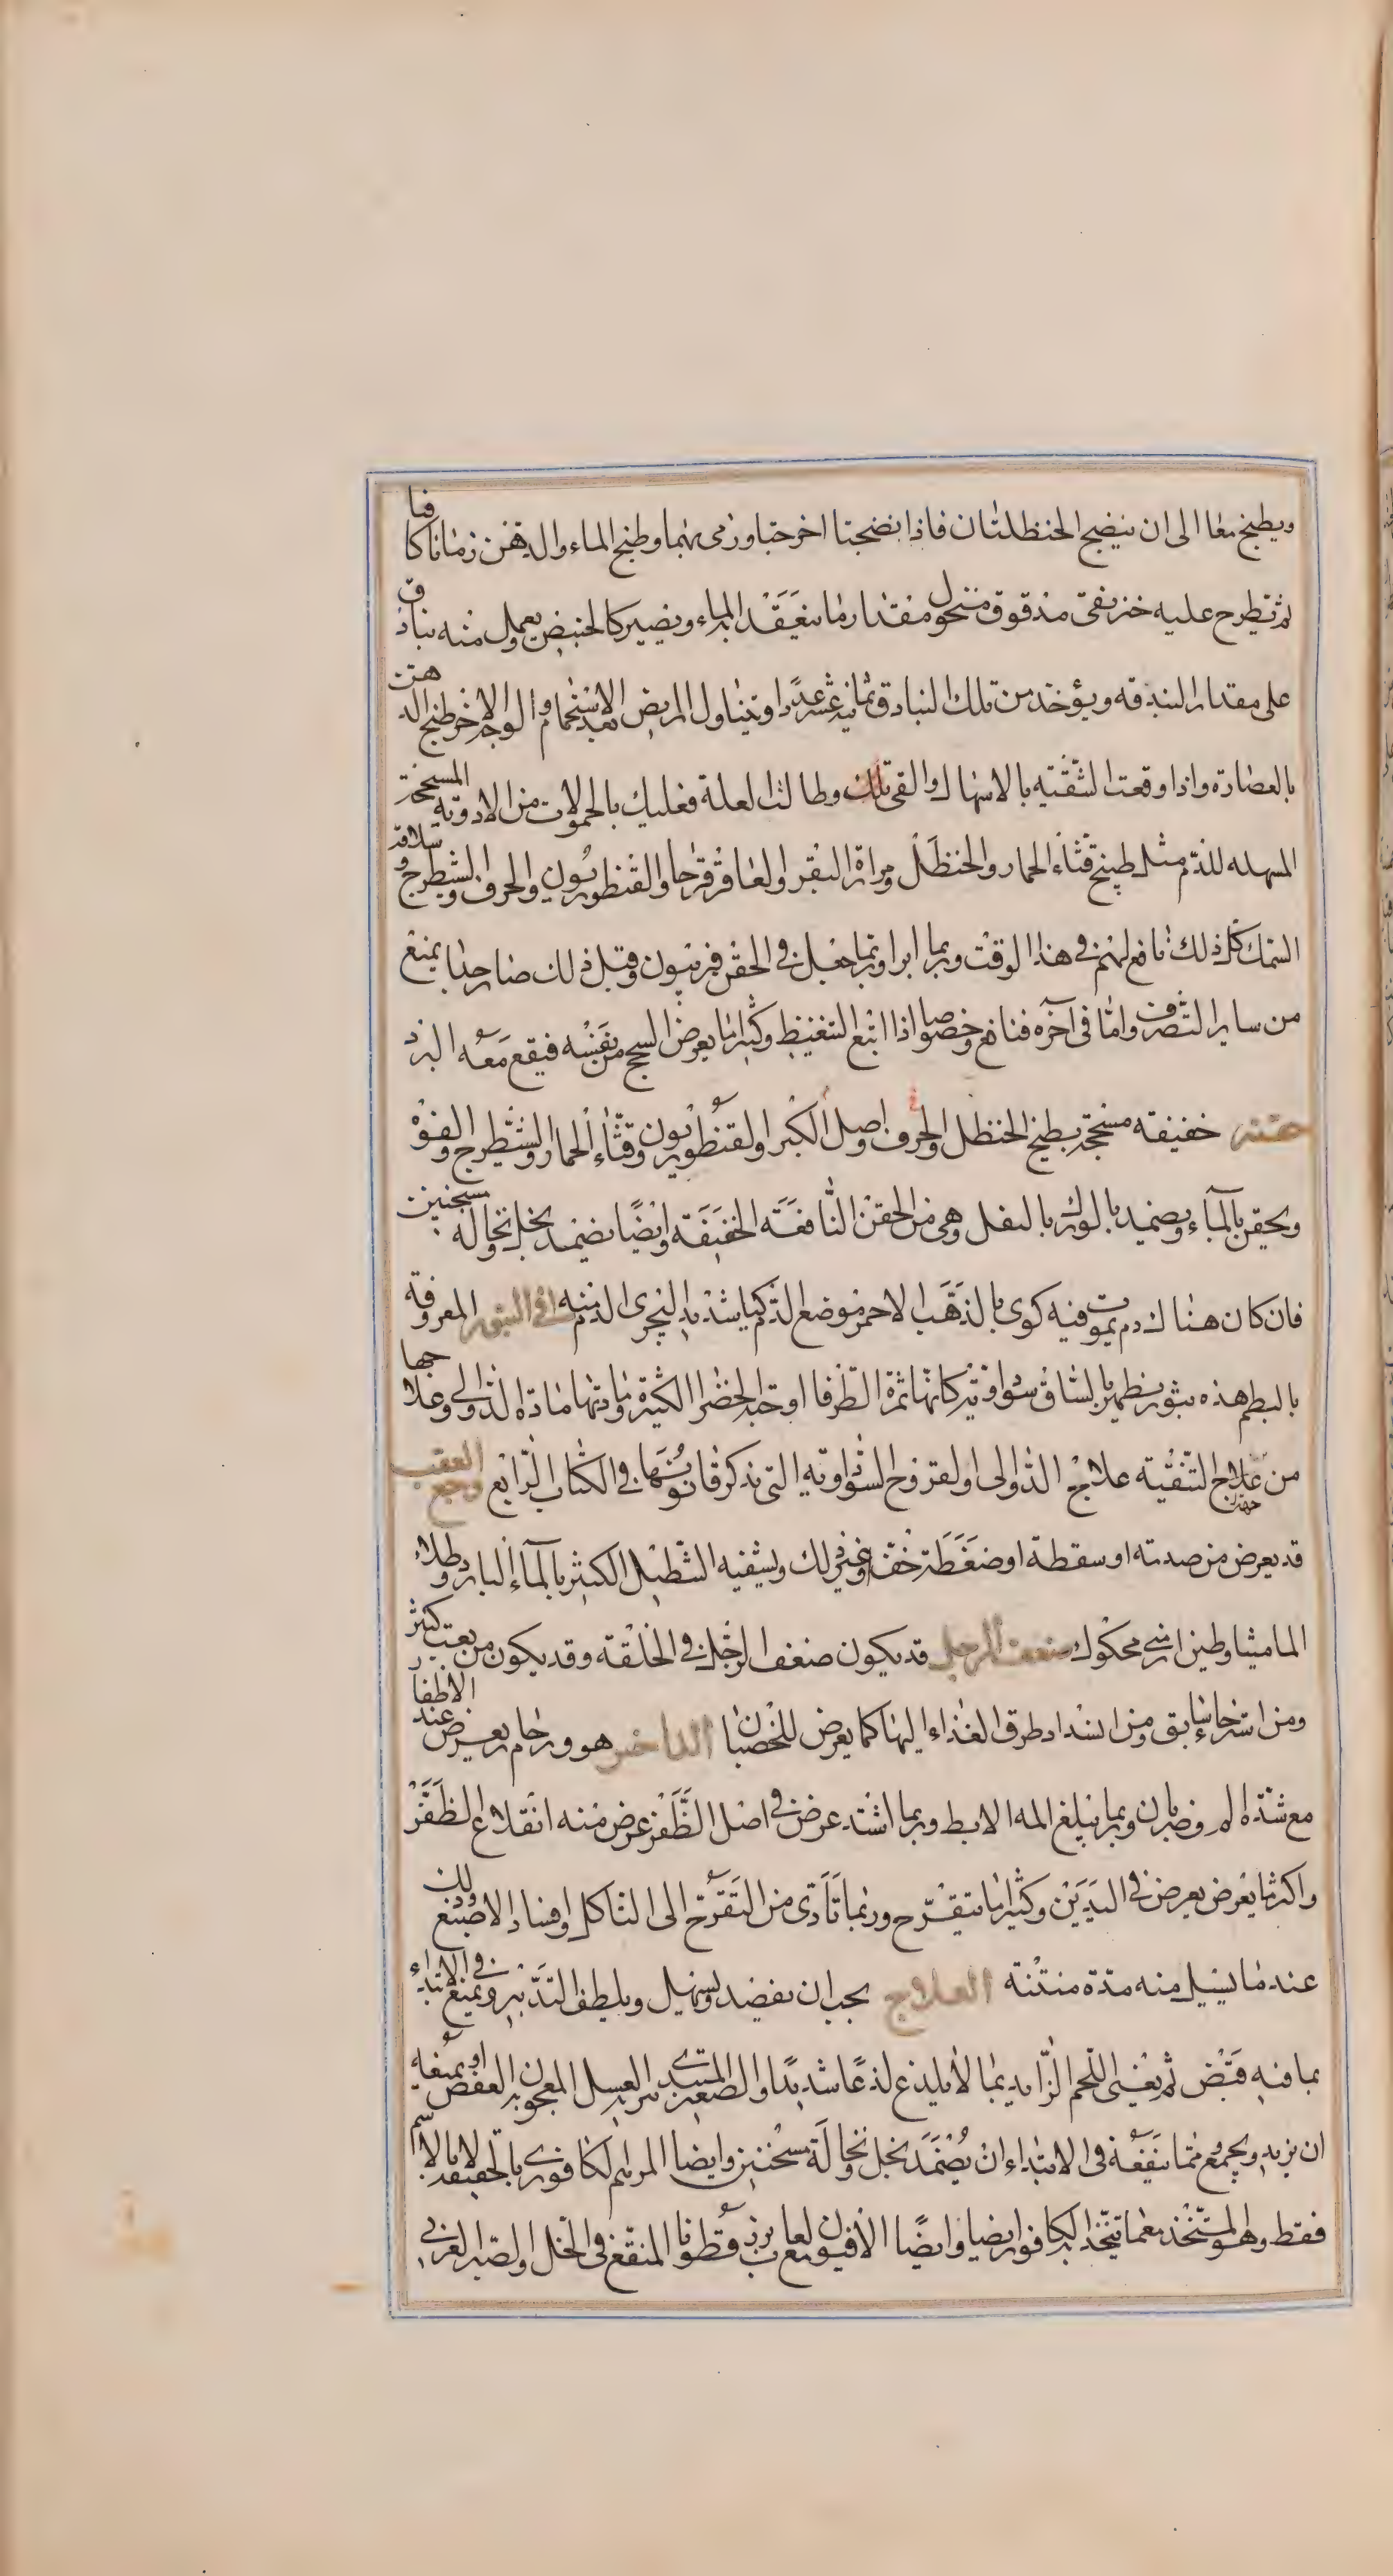 ويطبخ معا الى ان ينضج الحنظلتان فاذا نضجتا اخرجتا ورمى بهما وطبخ الماء والدهن زمانا كافيا
ثم تطرح عليه خبز نقى مدقوق منخول مقدار ما ينعقد به الماء ويصير كالخبيص يعمل منه بنادق
على مقدار البندقه ويؤخذ من تلك البنادق ثمانية عشر عددا ويتناول المريض بعد الاستحمام والوجه الاخر طبخ الدهن
بالعصارة واذا وقعت التنقيه بالاسهال والقى تلك وطالت العلة فعليك بالحمولات من الادوية المسحجة
المسهله للدم مثل طبيخ قثاء الحمار والحنظل ومرارة البقر والعاقرقرحا والقنطوريون والحرف والشيطرج وسلاقة
السمك كل ذلك نافع لهم فى هذا الوقت وربما ابرا وربما جعل فى الحقن فربيون وقبل ذلك ضار جدا يمنع
من ساير التصرف واما فى آخره فنافع وخصوصا اذا اتبع التغنيظ وكثيرا ما يعرض السحج من نفسه فيقع معه البرؤ
حقنه خفيفه مسحجة بطبيخ الحنظل والحرف واصل الكبر والقنطوريون وقثاء الحمار والشيطرج والفوة
ويحقن بالماء ويضمد بالورك بالبقل وهى من الحقن النافعة الخفيفة وايضا يضمد بخل نخاله مسخنين
فان كان هناك دم يموت فيه كوى بالذهب الاحمر موضع الدم كيا شديدا لينجرى الدم منه فى البثور المعروفة
بالبطم هذه بثور يظهر بالساق سوداوية كانها ثمرة الطرفا او حبه الخضرا الكبيرة ومادتها مادة الدوالى وعلاجها
من جهة علاج التنقية علاج الدوالى والقروح السوداوية التى نذكر قانونها فى الكتاب الرابع وجع العقب
قد يعرض من صدمة او سقطة او ضغطة خف وغير ذلك ويشفيه التنطيل الكثير بالماء البارد وطلاء
الماميثا وطين ارمنى محكوك ضعف الرجل قد يكون ضعف الرجل فى الخلقة وقد يكون من تعب كثير
ومن استرخاء سابق ومن انسداد طرق الغذاء اليها كما يعرض للخصيان الداخس هو ورم حار يعرض عند الاظفار
مع شدة الم وضربان وربما يبلغ المه الابط وربما اشتد عرض فى اصل الظفر عرض منه انقلاع الظفر
واكثر ما يعرض يعرض فى اليدين وكثيرا ما يتقرح وربما تأدى من التقرح الى التاكل وافساد الاصبع وذلك
عند ما يسيل منه مدة منتنة العلاج يجب ان يفصد ويسهل ويلطف التدبير ويمنع فى الابتداء
بما فيه قبض ثم يفنى اللحم الزايد بما لا يلذع لذعا شديدا والصعب المبتدى يبريه العسل المعجون به العفص او يمنعه
ان يزيد ويجمع ومما ينفعه فى الابتداء ان يضمد بخل ونخالة مسخنين وايضا المرهم الكافورى بالحقيقة لا بالاسم
فقط وهو المتخذ بما يتخذ به الكافور ايضا وايضا الافيون بلعاب بزر قطونا المنقع فى الخل والصبر العربى